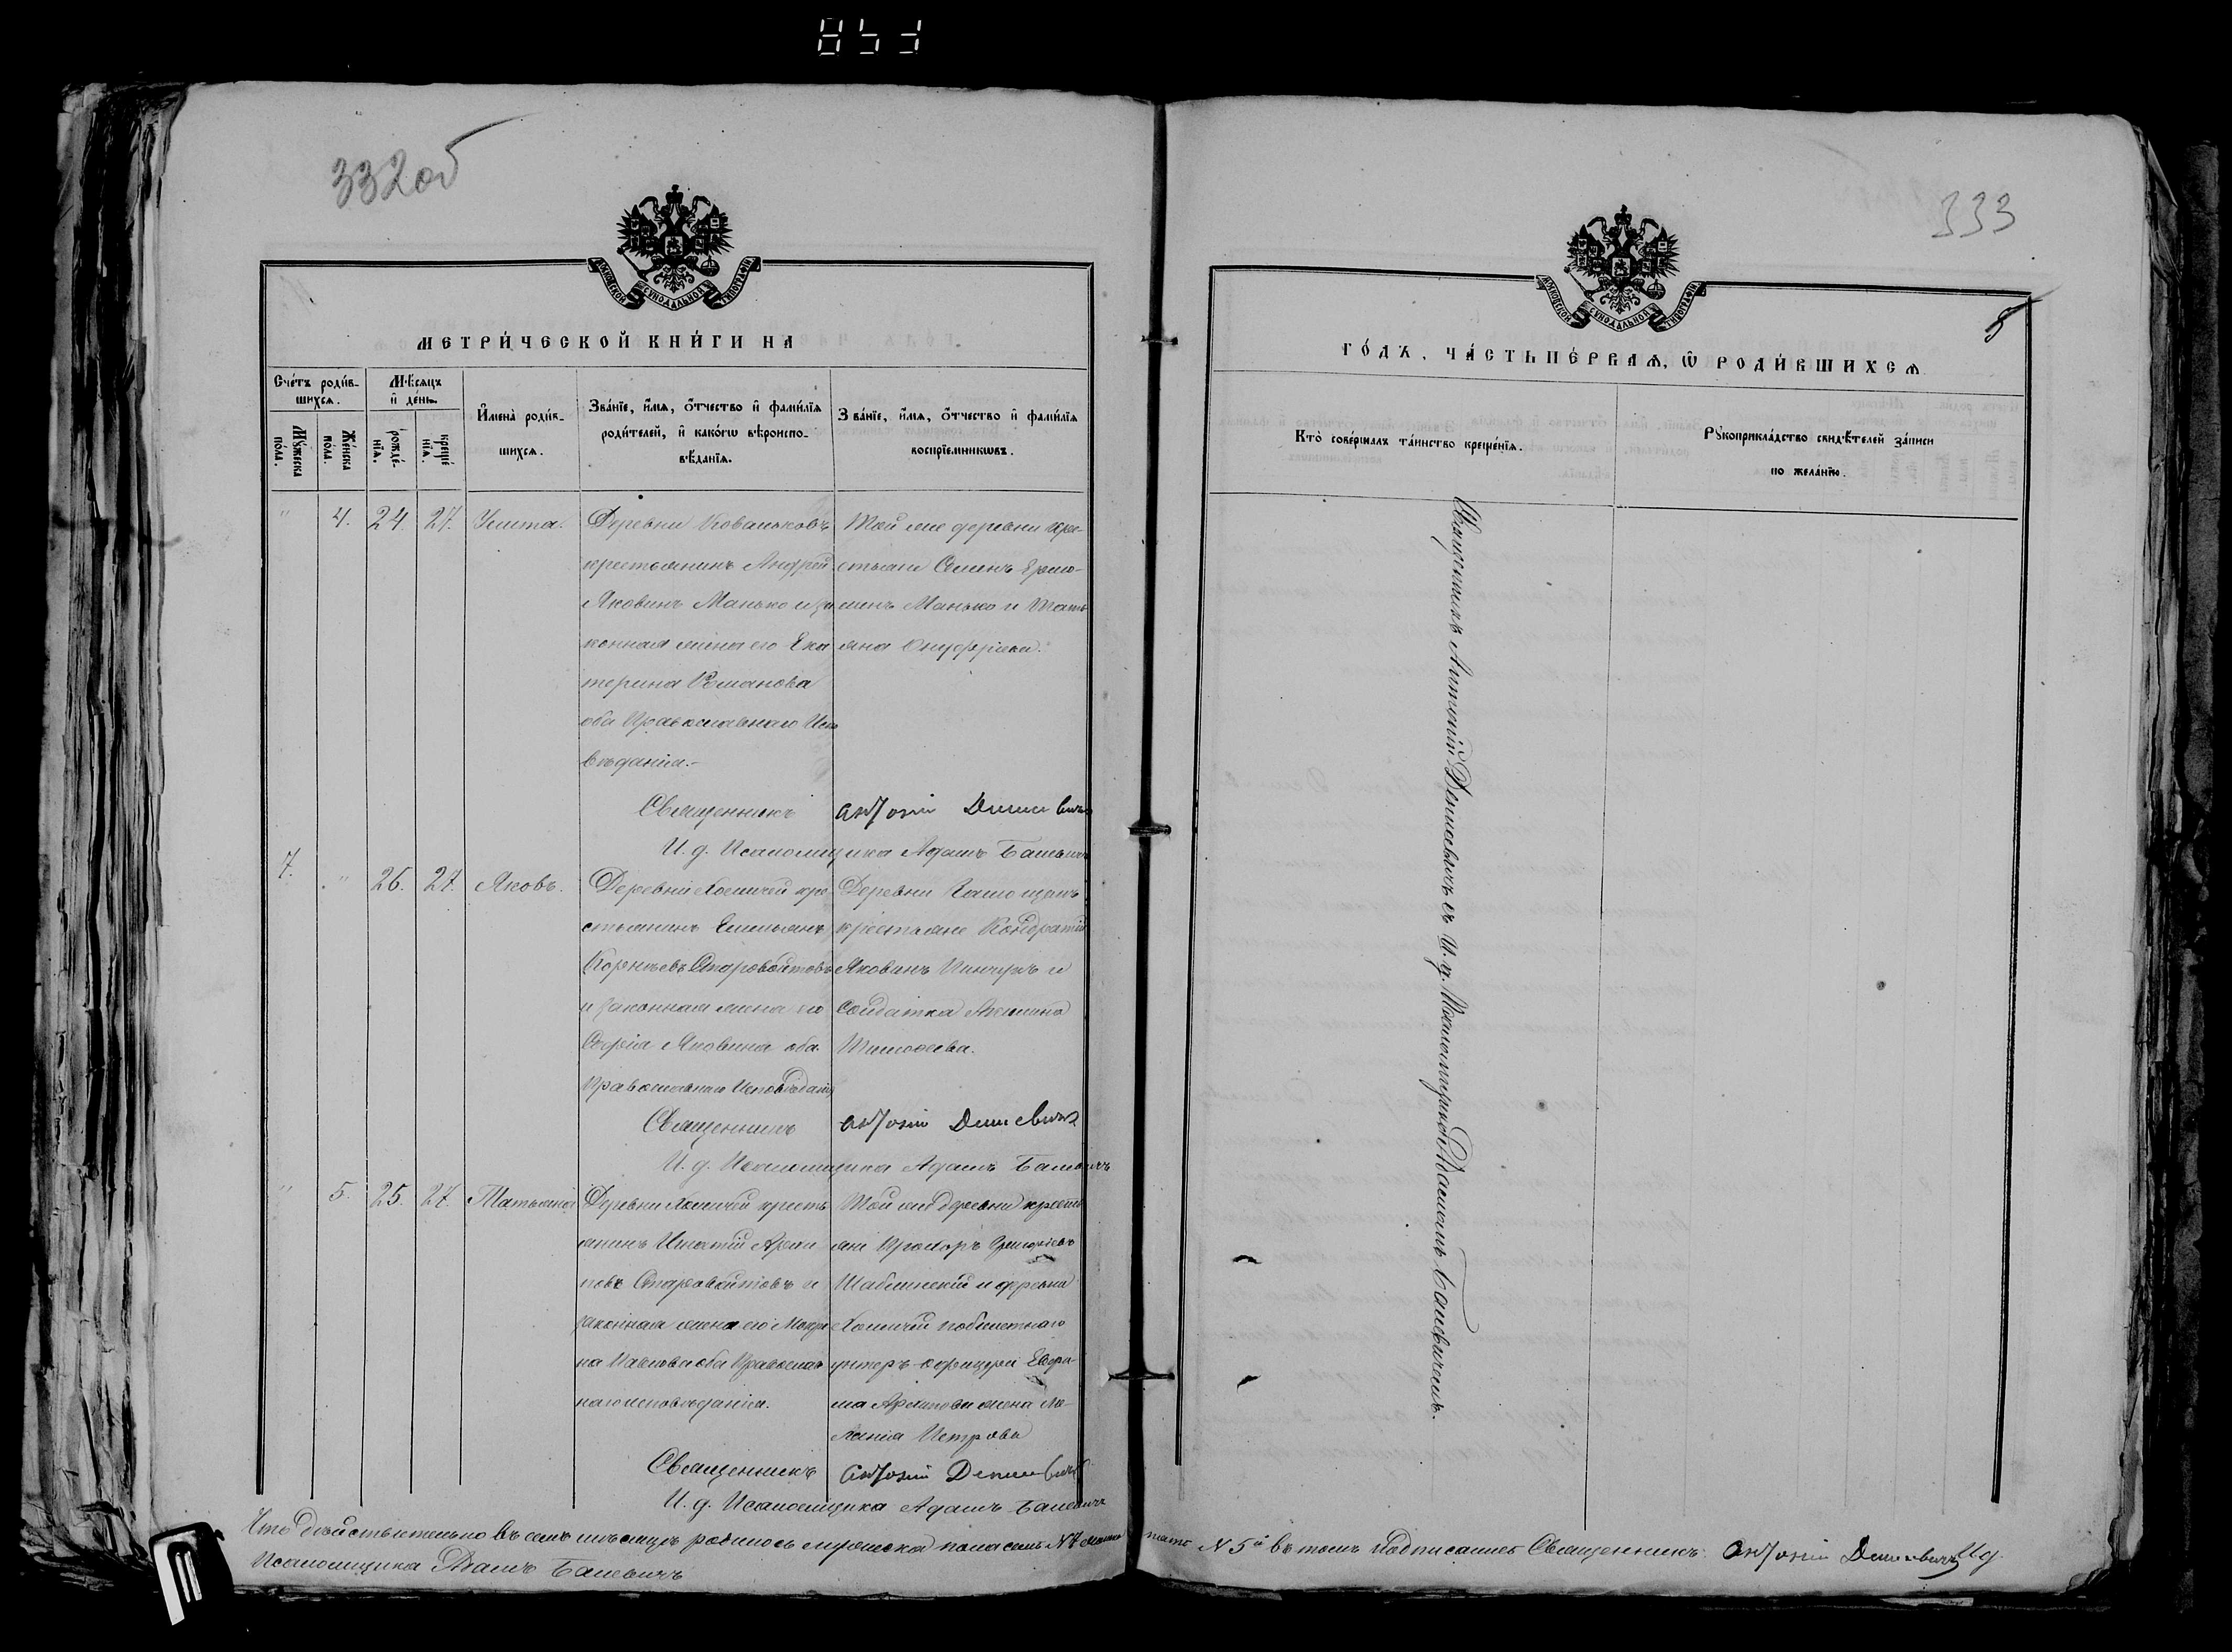 332 об
333
5
МЕТРИ́ЧЕСКОЙ КНИ́ГИ НА
Счéтъ роди́в-
шихся.
Мѣ́сяцъ
и҆ де́нь.
И҆мена̀ роди́в-
шихся.
Зва́нїе, и҆́мя, о҆́тчество и҆ фами́лїя
роди́телей, и҆ како́гѡ вѣроиспо-
вѣ́данїя.
Зва́нїе, и҆́мя, о҆́тчество и҆ фами́лїя
воспрїе́мникѡвъ.
Мꙋ́жеска
по́ла.
Же́нска
по́ла.
рожде́-
нїя.
креще́
нїя.
" 4. 24. 27. Улита.
Деревни Кованьковъ
крестьянинъ Андрей
Яковинъ Манько и за
конная жена его Ека
терина Романова
оба Православнаго Испо
вѣданія.-
Той же деревни кре-
стьяне Семенъ Ермо-
линъ Манько и Тать
яна Онуфріева.
Священникъ Антоній Денисевичъ
И. д. Псаломщика Адамъ Балевичъ
7. " 26. 27. Яковъ.
Деревни Хомичей кре-
стьянинъ Емельянъ
Корнѣевъ Старовойтовъ
и законная жена его
Софія Яковина оба
Православнаго Исповѣданія
Деревни
крестьяне Кондратій
Яковинъ Пинчукъ и
Солдатка
Тимофеева.
Священникъ Антоній Денисевичъ
И. д. Псаломщика Адамъ Балевичъ
" 5. 25. 27. Татьяна
Деревни Хомичей кресть
янинъ Игнатій Архи
повъ Старовойтовъ и
законная жена его Макри
на Павлова оба Православ
наго исповѣданія.
Той же деревни кресть
яне Прохоръ Григорьевъ
Шаблинскій и деревни
Хомичей побилетнаго
унтеръ-офицера Евфи-
ма Архипова жена Ме-
ланія Петрова
Священникъ Антоній Денисевичъ
И. д. Псаломщика Адамъ Балевичъ
Что дѣйствительно въ семъ мѣсяцѣ родилось мужеска пола семь N 7
N 5й въ томъ подписаемся Священникъ Антоній Денисевичъ И д.
Псаломщика Адамъ Балевичъ
ГО́ДЪ, ЧА́СТЬ ПЕ́РВАЯ, Ѡ҆ РОДИ́ВШИХСЯ
Кто̀ соверша́лъ та́инство креще́нїя.
Рꙋкоприкла́дство свидѣ́телей за́писи
по жела́нїю.
Священникъ Антоній Денисевичъ съ И. д. Псаломщика Адамомъ Балевичемъ.